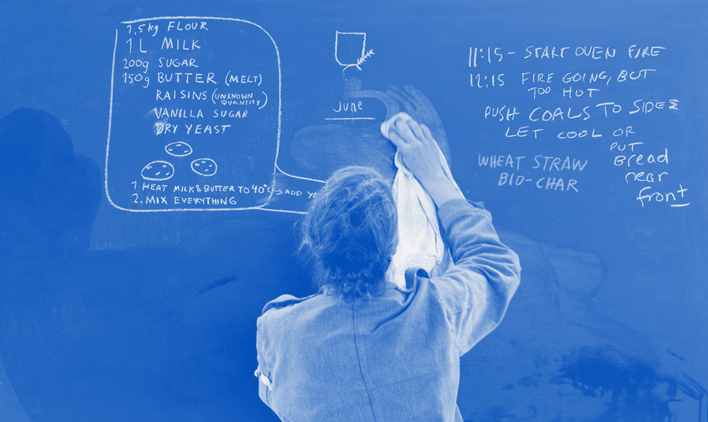 1,5kg FLOUR
1L MILK
200g SUGAR
150g BUTTER (MELT)
RAISINS (UNKNOWN QUANTITY)
VANILLA SUGAR
DRY YEAST
1. HEAT MILK & BUTTER TO 40°C → ADD
2. MIX EVERYTHING
June
11:15 - START OVEN FIRE
12:15 FIRE GOING, BUT
TOO HOT
PUSH COALS TO SIDES
LET COOL OR
PUT
Bread
near
front
WHEAT STRAW
BIO-CHAR